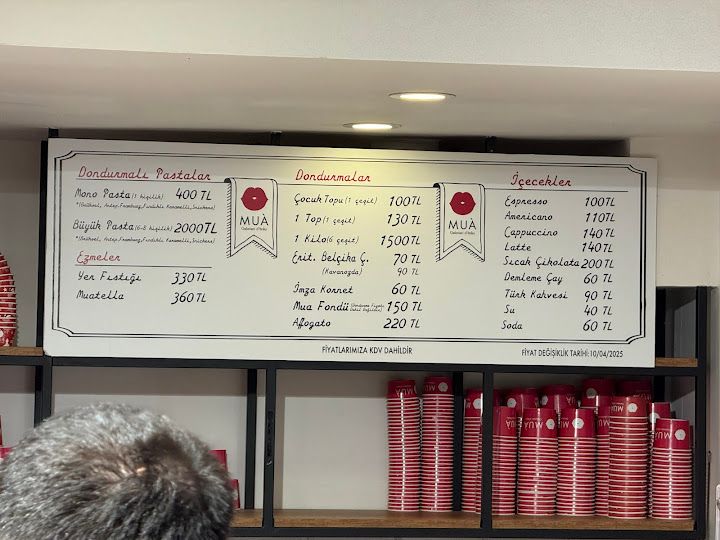 Dondurmalı Pastalar
Mono Pasta (1 kişilik) 400 TL
Büyük Pasta (6-8 kişilik) 2000 TL
Ezmeler
Yer Fıstığı 330 TL
Muatella 360 TL
MUÀ
Dondurmalar
Çocuk Topu (1 çeşit) 100 TL
1 Top (1 çeşit) 130 TL
1 Kilo (6 çeşit) 1500 TL
Erit. Belçika Ç. 70 TL
(Kavanozda) 90 TL
İmza Kornet 60 TL
Mua Fondü 150 TL
Affogato 220 TL
MUÀ
İçecekler
Espresso 100 TL
Americano 110 TL
Cappuccino 140 TL
Latte 140 TL
Sıcak Çikolata 200 TL
Demleme Çay 60 TL
Türk Kahvesi 90 TL
Su 40 TL
Soda 60 TL
FİYATLARIMIZA KDV DAHİLDİR
FİYAT DEĞİŞİKLİK TARİHİ:10/04/2025